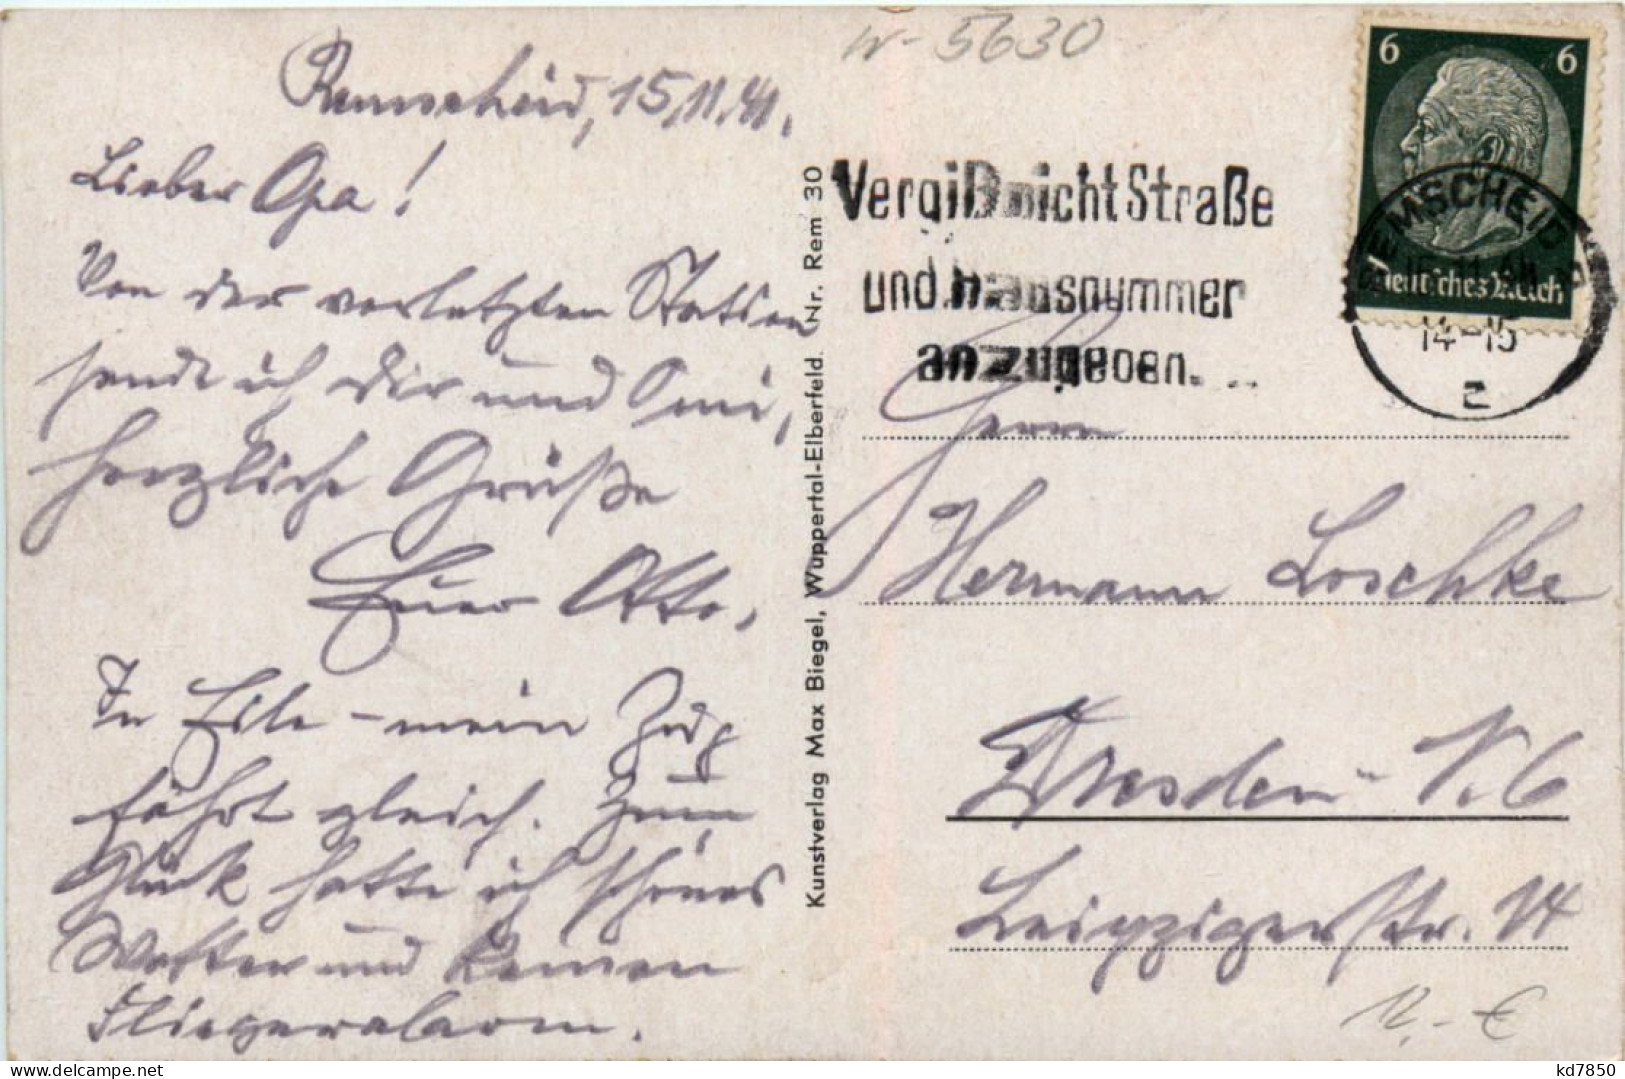 W- 5630
Remscheid, 15.11.41.
Lieber Opa!
Von der vorletzten Station
sende ich Dir und Omi,
herzliche Grüße
Euer Otto.
In Eile – mein Zug
fährt gleich. Zum
Glück hatte ich schönes
Wetter und keinen
Fliegeralarm.
Kunstverlag Max Biegel, Wuppertal-Elberfeld. Nr. Rem 30
Vergiß nicht Straße
und Hausnummer
anzugeben.
6 6
Deutsches Reich
REMSCHEID
15.11.41
14-15
z
Herrn
Hermann Loschke
Dresden - N. 6
Leipzigerstr. 14
12,- €
kd7850